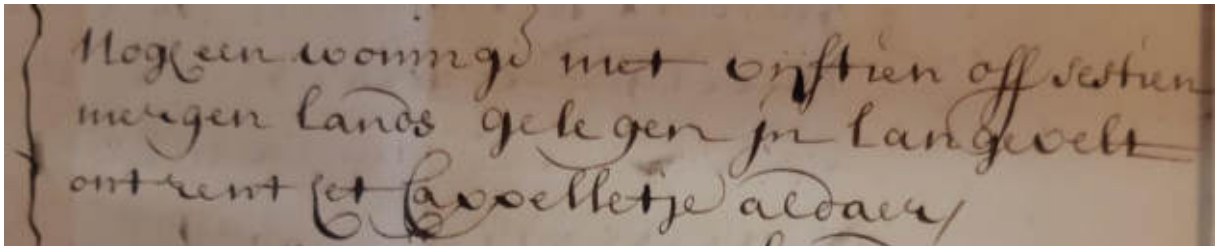 Nog een woninge met vijftien off sestien
mergen lands gelegen jn Langevelt
ontrent het Cappelletje aldaer/